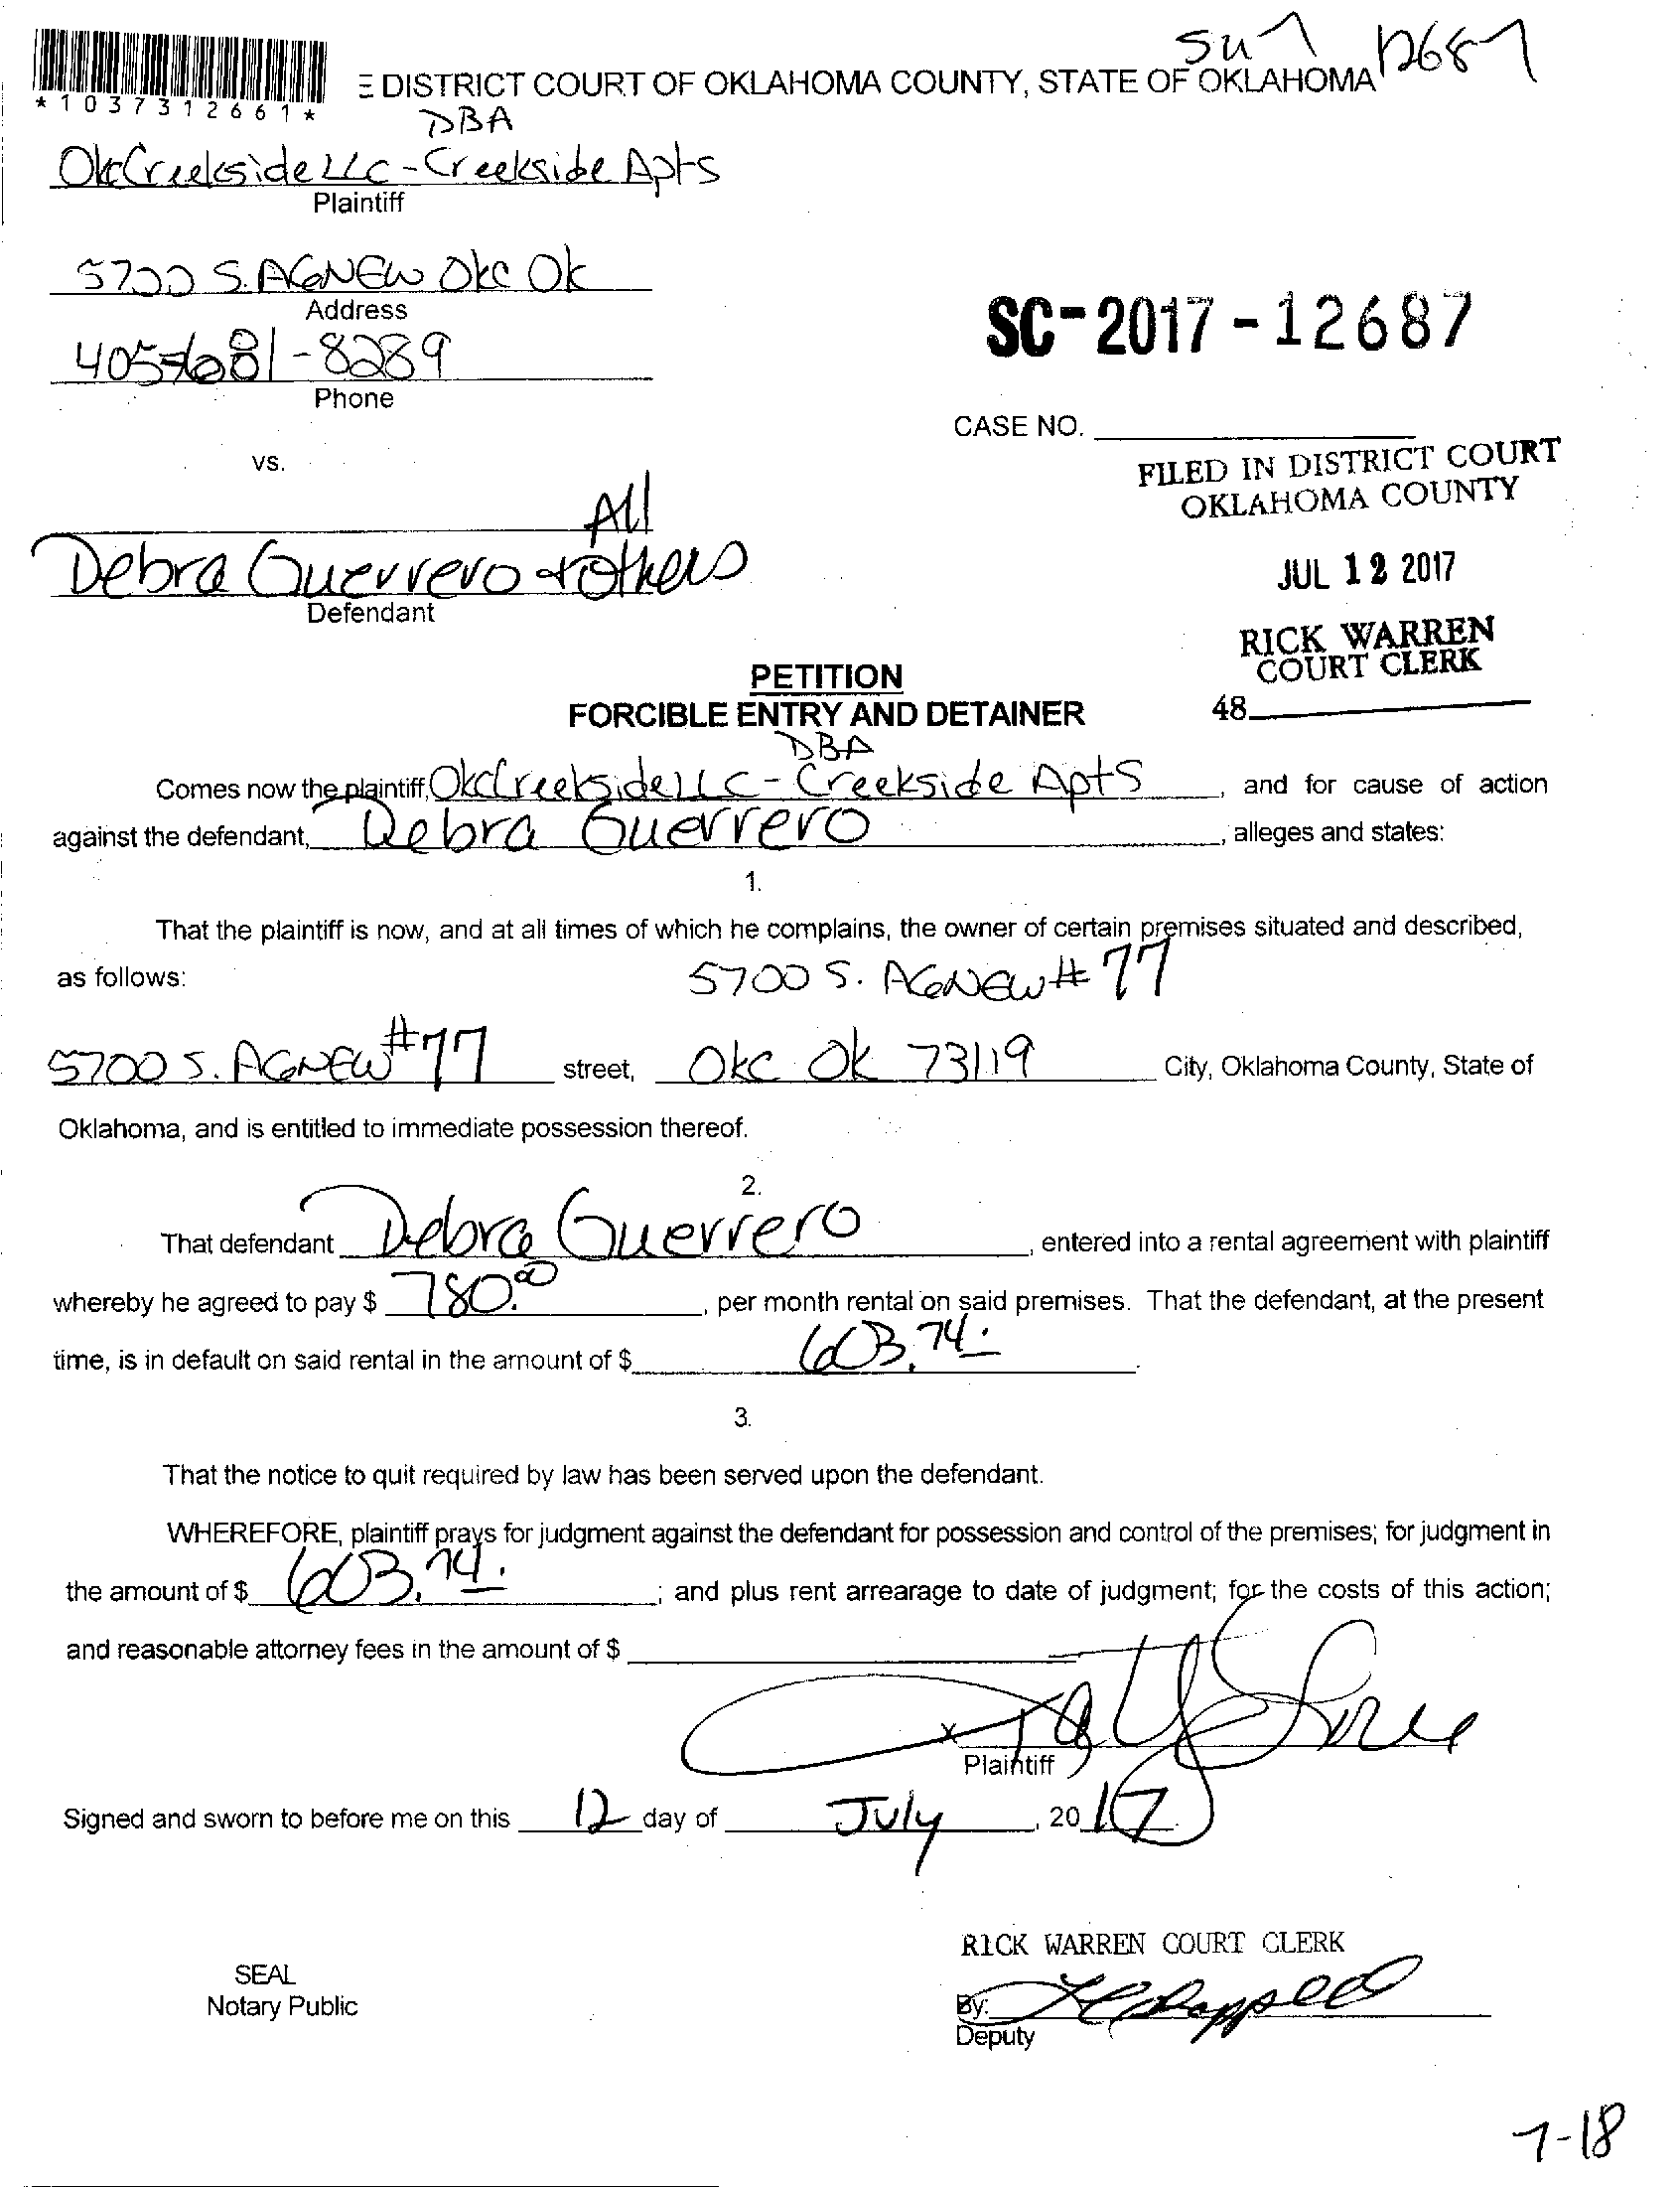 SU 12687
*1037312661*
E DISTRICT COURT OF OKLAHOMA COUNTY, STATE OF OKLAHOMA
DBA
OkcCreekside LLC - Creekside Apts
Plaintiff
5700 S. AGNEW OKC OK
Address
405-681-8289
Phone
SC-2017-12687
CASE NO.
vs.
FILED IN DISTRICT COURT
OKLAHOMA COUNTY
All
Debra Guerrero + Others
Defendant
JUL 12 2017
RICK WARREN
COURT CLERK
48
PETITION
FORCIBLE ENTRY AND DETAINER
DBA
Comes now the plaintiff, OkcCreekside LLC - Creekside Apts, and for cause of action
against the defendant, Debra Guerrero, alleges and states:
1.
That the plaintiff is now, and at all times of which he complains, the owner of certain premises situated and described,
as follows: 5700 S. AGNEW # 77
5700 S. AGNEW #77 street, Okc Ok 73119 City, Oklahoma County, State of
Oklahoma, and is entitled to immediate possession thereof.
2.
That defendant Debra Guerrero, entered into a rental agreement with plaintiff
whereby he agreed to pay $ 780.00, per month rental on said premises. That the defendant, at the present
time, is in default on said rental in the amount of $ 603.74.
3.
That the notice to quit required by law has been served upon the defendant.
WHEREFORE, plaintiff prays for judgment against the defendant for possession and control of the premises; for judgment in
the amount of $ 603.74; and plus rent arrearage to date of judgment; for the costs of this action;
and reasonable attorney fees in the amount of $
x
Plaintiff
Signed and sworn to before me on this 12 day of July, 2017.
RICK WARREN COURT CLERK
SEAL
Notary Public
By:
Deputy
7-18